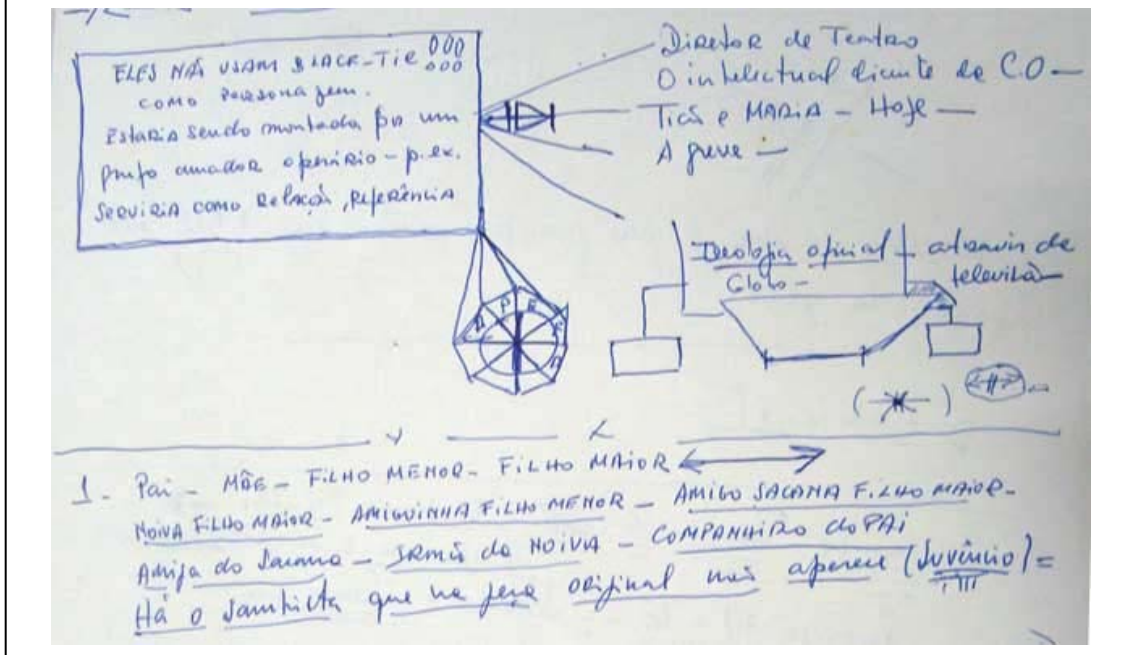 ELES NÃO USAM BLACK-TIE
COMO PERSONAGEM.
ESTARIA sendo montada por um
grupo amador operário - p. ex.
SERVIRIA COMO RELAÇÃO, REFERÊNCIA
Diretor de Teatro
O intelectual diante de C.O —
Tião e MARIA - Hoje —
A greve —
Ideologia oficial - através de
Globo - televisão —
O P E R A
1 - Pai - MÃE - FILHO MENOR - FILHO MAIOR
NOIVA FILHO MAIOR - AMIGUINHA FILHO MENOR - AMIGO SACANA FILHO MAIOR -
Amiga do Sacana - IRMÃ da NOIVA - COMPANHEIRO do PAI
Há o sambista que na peça original não aparece (Juvêncio) =